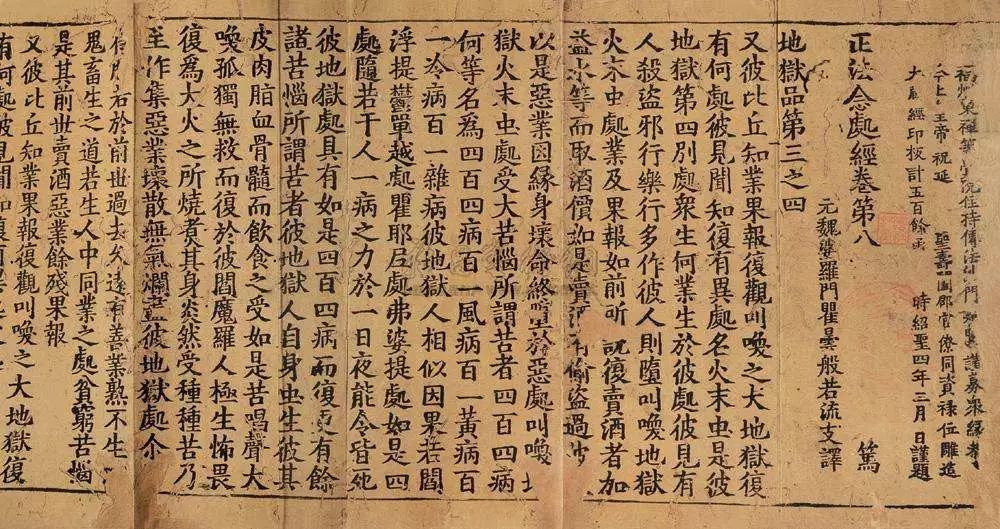 福州東禪等覺院住持傳法沙門智華謹募衆緣恭
今上皇帝祝延 聖壽 國郡官僚同資祿位雕造
大藏經印板計五百餘函 時紹聖四年三月日謹題
正法念處經卷第八 篤
元魏婆羅門瞿曇般若流支譯
地獄品第三之四
又彼比丘知業果報復觀叫喚之大地獄復
有何處彼見聞知復有異處名火末虫是彼
地獄第四別處衆生何業生於彼處彼見有
人殺盜邪行樂行多作彼人則墮叫喚地獄
火末虫處業及果報如前所說復賣酒者加
益水等而取酒價如是賣酒有偷盜過
以是惡業因緣身壞命終墮於惡處叫喚地
獄火末虫處受大苦惱所謂苦者四百四病
何等名為四百四病百一風病百一黃病百
一冷病百一雜病彼地獄人相似因果若閻
浮提鬱單越處瞿耶尼處弗婆提處如是四
處隨若干人一病之力於一日夜能令皆死
彼地獄處具有如是四百四病而復更有餘
諸苦惱所謂苦者彼地獄人自身虫生彼其
皮肉脂血骨髓而飲食之受如是苦唱聲大
喚孤獨無救而復於彼閻魔羅人極生怖畏
復為大火之所燒煮其身炎然受種種苦乃
至作集惡業壞散無氣爛盡彼地獄處尒
右於前世過去久遠有善業熟不生
鬼畜生之道若生人中同業之處貧窮苦惱
是其前世賣酒惡業餘殘果報
又彼比丘知業果報復觀叫喚之大地獄復
有何處彼見聞知復